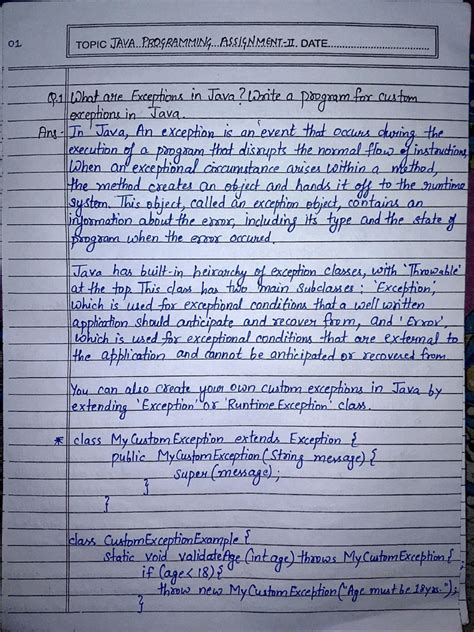 01
TOPIC JAVA PROGRAMMING ASSIGNMENT-II DATE
Q.1 What are Exceptions in Java? Write a program for custom
exceptions in Java.
Ans- In Java, An exception is an event that occurs during the
execution of a program that disrupts the normal flow of instructions.
When an exceptional circumstance arises within a method,
the method creates an object and hands it off to the runtime
system. This object, called an exception object, contains an
information about the error, including its type and the state of
program when the error occured.
Java has built-in heirarchy of exception classes, with 'Throwable'
at the top. This class has two main subclasses: 'Exception',
which is used for exceptional conditions that a well written
application should anticipate and recover from, and 'Error',
which is used for exceptional conditions that are external to
the application and cannot be anticipated or recovered from.
You can also create your own custom exceptions in Java by
extending 'Exception' or 'RuntimeException' class.
* class MyCustomException extends Exception {
public MyCustomException(String message) {
super(message);
}
}
class CustomExceptionExample {
static void validateAge (int age) throws MyCustomException {
if (age < 18) {
throw new MyCustomException("Age must be 18yrs.");
}